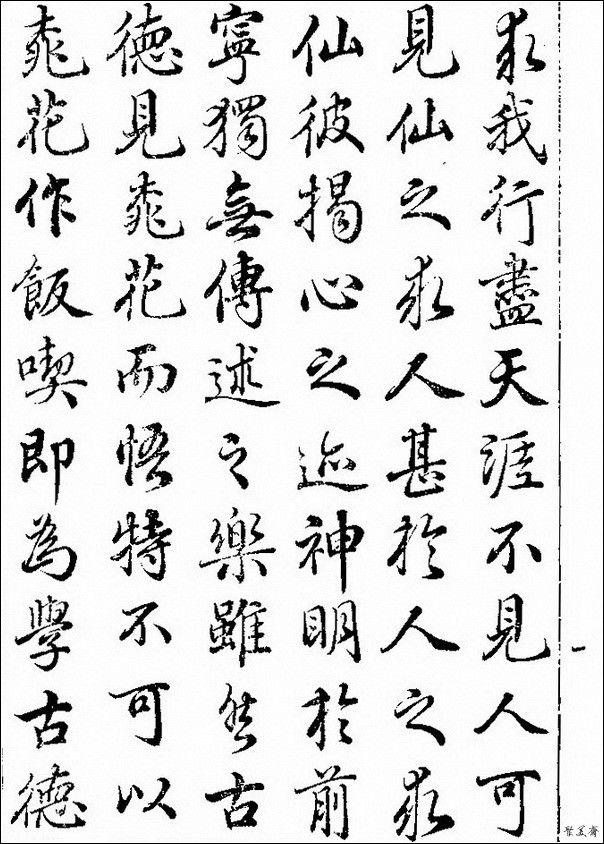 求我行盡天涯不見人可
見仙之求人甚於人之求
仙彼揭心之迹神明於前
寧獨無傳述之樂雖然古
德見桃花而悟特不可以
桃花作飯喫即為學古德